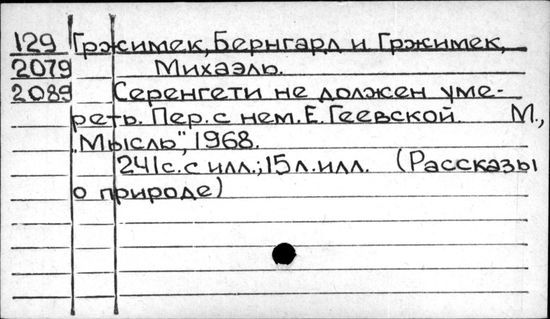 129 Гржимек, Бернгард и Гржимек,
2079 Михаэль.
2089 Серенгети не должен уме-
реть. Пер. с нем. Е. Геевской. М.,
"Мысль", 1968.
241с. с илл.; 15 л. илл. (Рассказы
о природе)